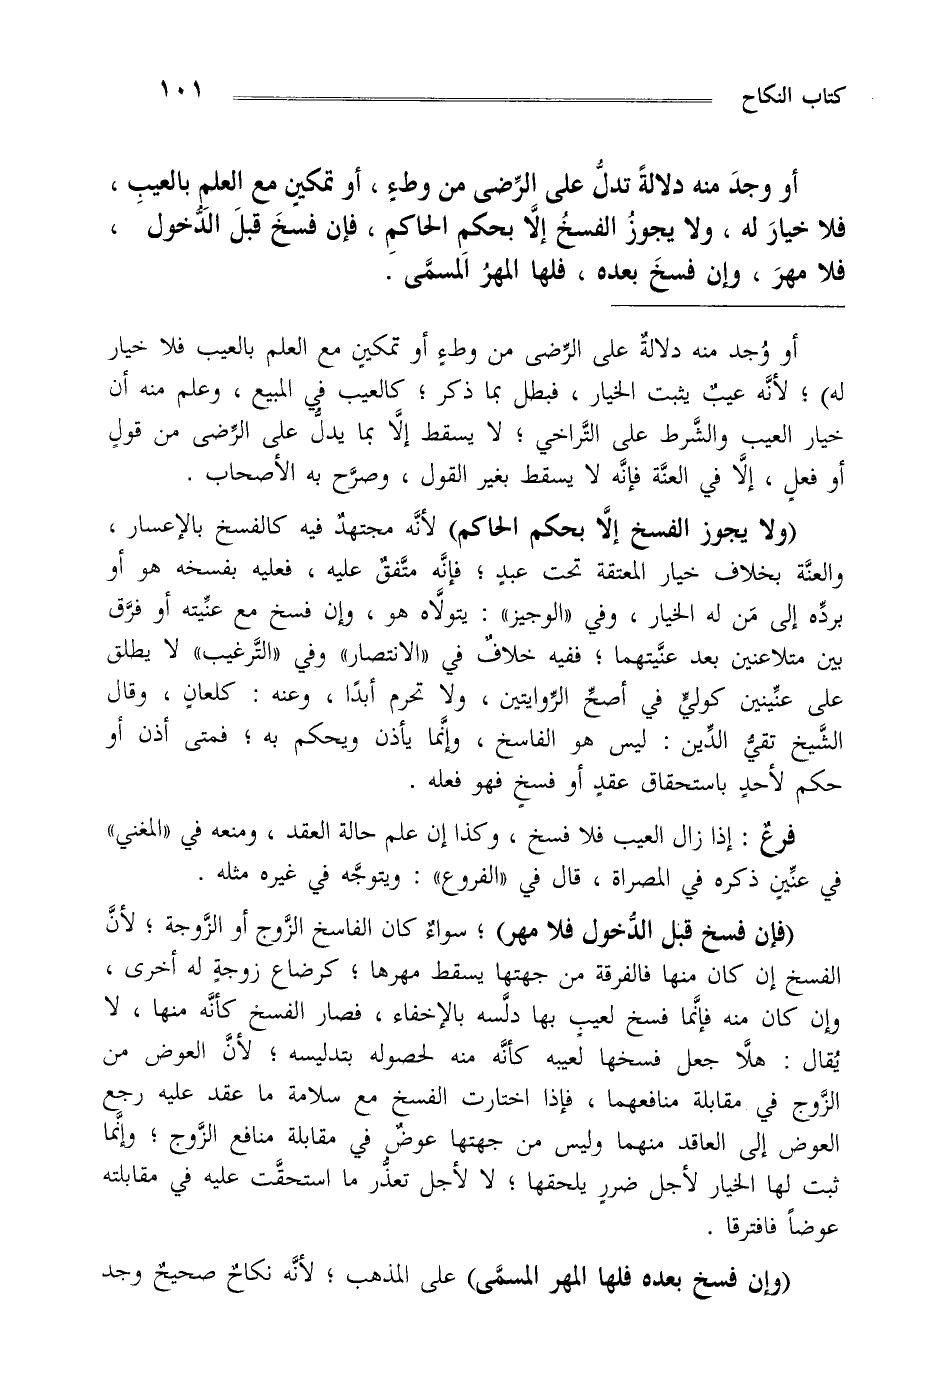 كتاب النكاح ١٠١
أو وجدَ منه دلالةً تدلُّ على الرِّضى من وطءٍ ، أو تمكينٍ مع العلمِ بالعيبِ ،
فلا خيارَ له ، ولا يجوزُ الفسخُ إلَّا بحكمِ الحاكمِ ، فإن فسخَ قبلَ الدُّخول ،
فلا مهرَ ، وإن فسخَ بعده ، فلها المهرُ المسمَّى .
أو وُجد منه دلالةٌ على الرِّضى من وطءٍ أو تمكينٍ مع العلم بالعيب فلا خيار
له) ؛ لأنَّه عيبٌ يثبت الخيار ، فبطل بما ذكر ؛ كالعيب في المبيع ، وعلم منه أن
خيار العيب والشَّرط على التَّراخي ؛ لا يسقط إلَّا بما يدلُّ على الرِّضى من قولٍ
أو فعلٍ ، إلَّا في العنَّة فإنَّه لا يسقط بغير القول ، وصرَّح به الأصحاب .
(ولا يجوز الفسخ إلَّا بحكم الحاكم) لأنَّه مجتهدٌ فيه كالفسخ بالإعسار ،
والعنَّة بخلاف خيار المعتقة تحت عبدٍ ؛ فإنَّه متَّفقٌ عليه ، فعليه بفسخه هو أو
بردِّه إلى مَن له الخيار ، وفي «الوجيز» : يتولَّاه هو ، وإن فسخ مع عنِّيته أو فرَّق
بين متلاعنين بعد عنَّيتهما ؛ ففيه خلافٌ في «الانتصار» وفي «التَّرغيب» لا يطلق
على عنِّينين كوليٍّ في أصحِّ الرِّوايتين ، ولا تحرم أبدًا ، وعنه : كلعانٍ ، وقال
الشَّيخ تقيُّ الدِّين : ليس هو الفاسخ ، وإنَّما يأذن ويحكم به ؛ فمتى أذن أو
حكم لأحدٍ باستحقاق عقدٍ أو فسخٍ فهو فعله .
فرعٌ : إذا زال العيب فلا فسخ ، وكذا إن علم حالة العقد ، ومنعه في «المغني»
في عنِّينٍ ذكره في المصراة ، قال في «الفروع» : ويتوجَّه في غيره مثله .
(فإن فسخ قبل الدُّخول فلا مهر) ؛ سواءٌ كان الفاسخ الزَّوج أو الزَّوجة ؛ لأنَّ
الفسخ إن كان منها فالفرقة من جهتها يسقط مهرها ؛ كرضاع زوجةٍ له أخرى ،
وإن كان منه فإنَّما فسخ لعيبٍ بها دلَّسه بالإخفاء ، فصار الفسخ كأنَّه منها ، لا
يُقال : هلَّا جعل فسخها لعيبه كأنَّه منه لحصوله بتدليسه ؛ لأنَّ العوض من
الزَّوج في مقابلة منافعهما ، فإذا اختارت الفسخ مع سلامة ما عقد عليه رجع
العوض إلى العاقد منهما وليس من جهتها عوضٌ في مقابلة منافع الزَّوج ؛ وإنَّما
ثبت لها الخيار لأجل ضررٍ يلحقها ؛ لا لأجل تعذُّر ما استحقَّت عليه في مقابلته
عوضاً فافترقا .
(وإن فسخ بعده فلها المهر المسمَّى) على المذهب ؛ لأنَّه نكاحٌ صحيحٌ وجد